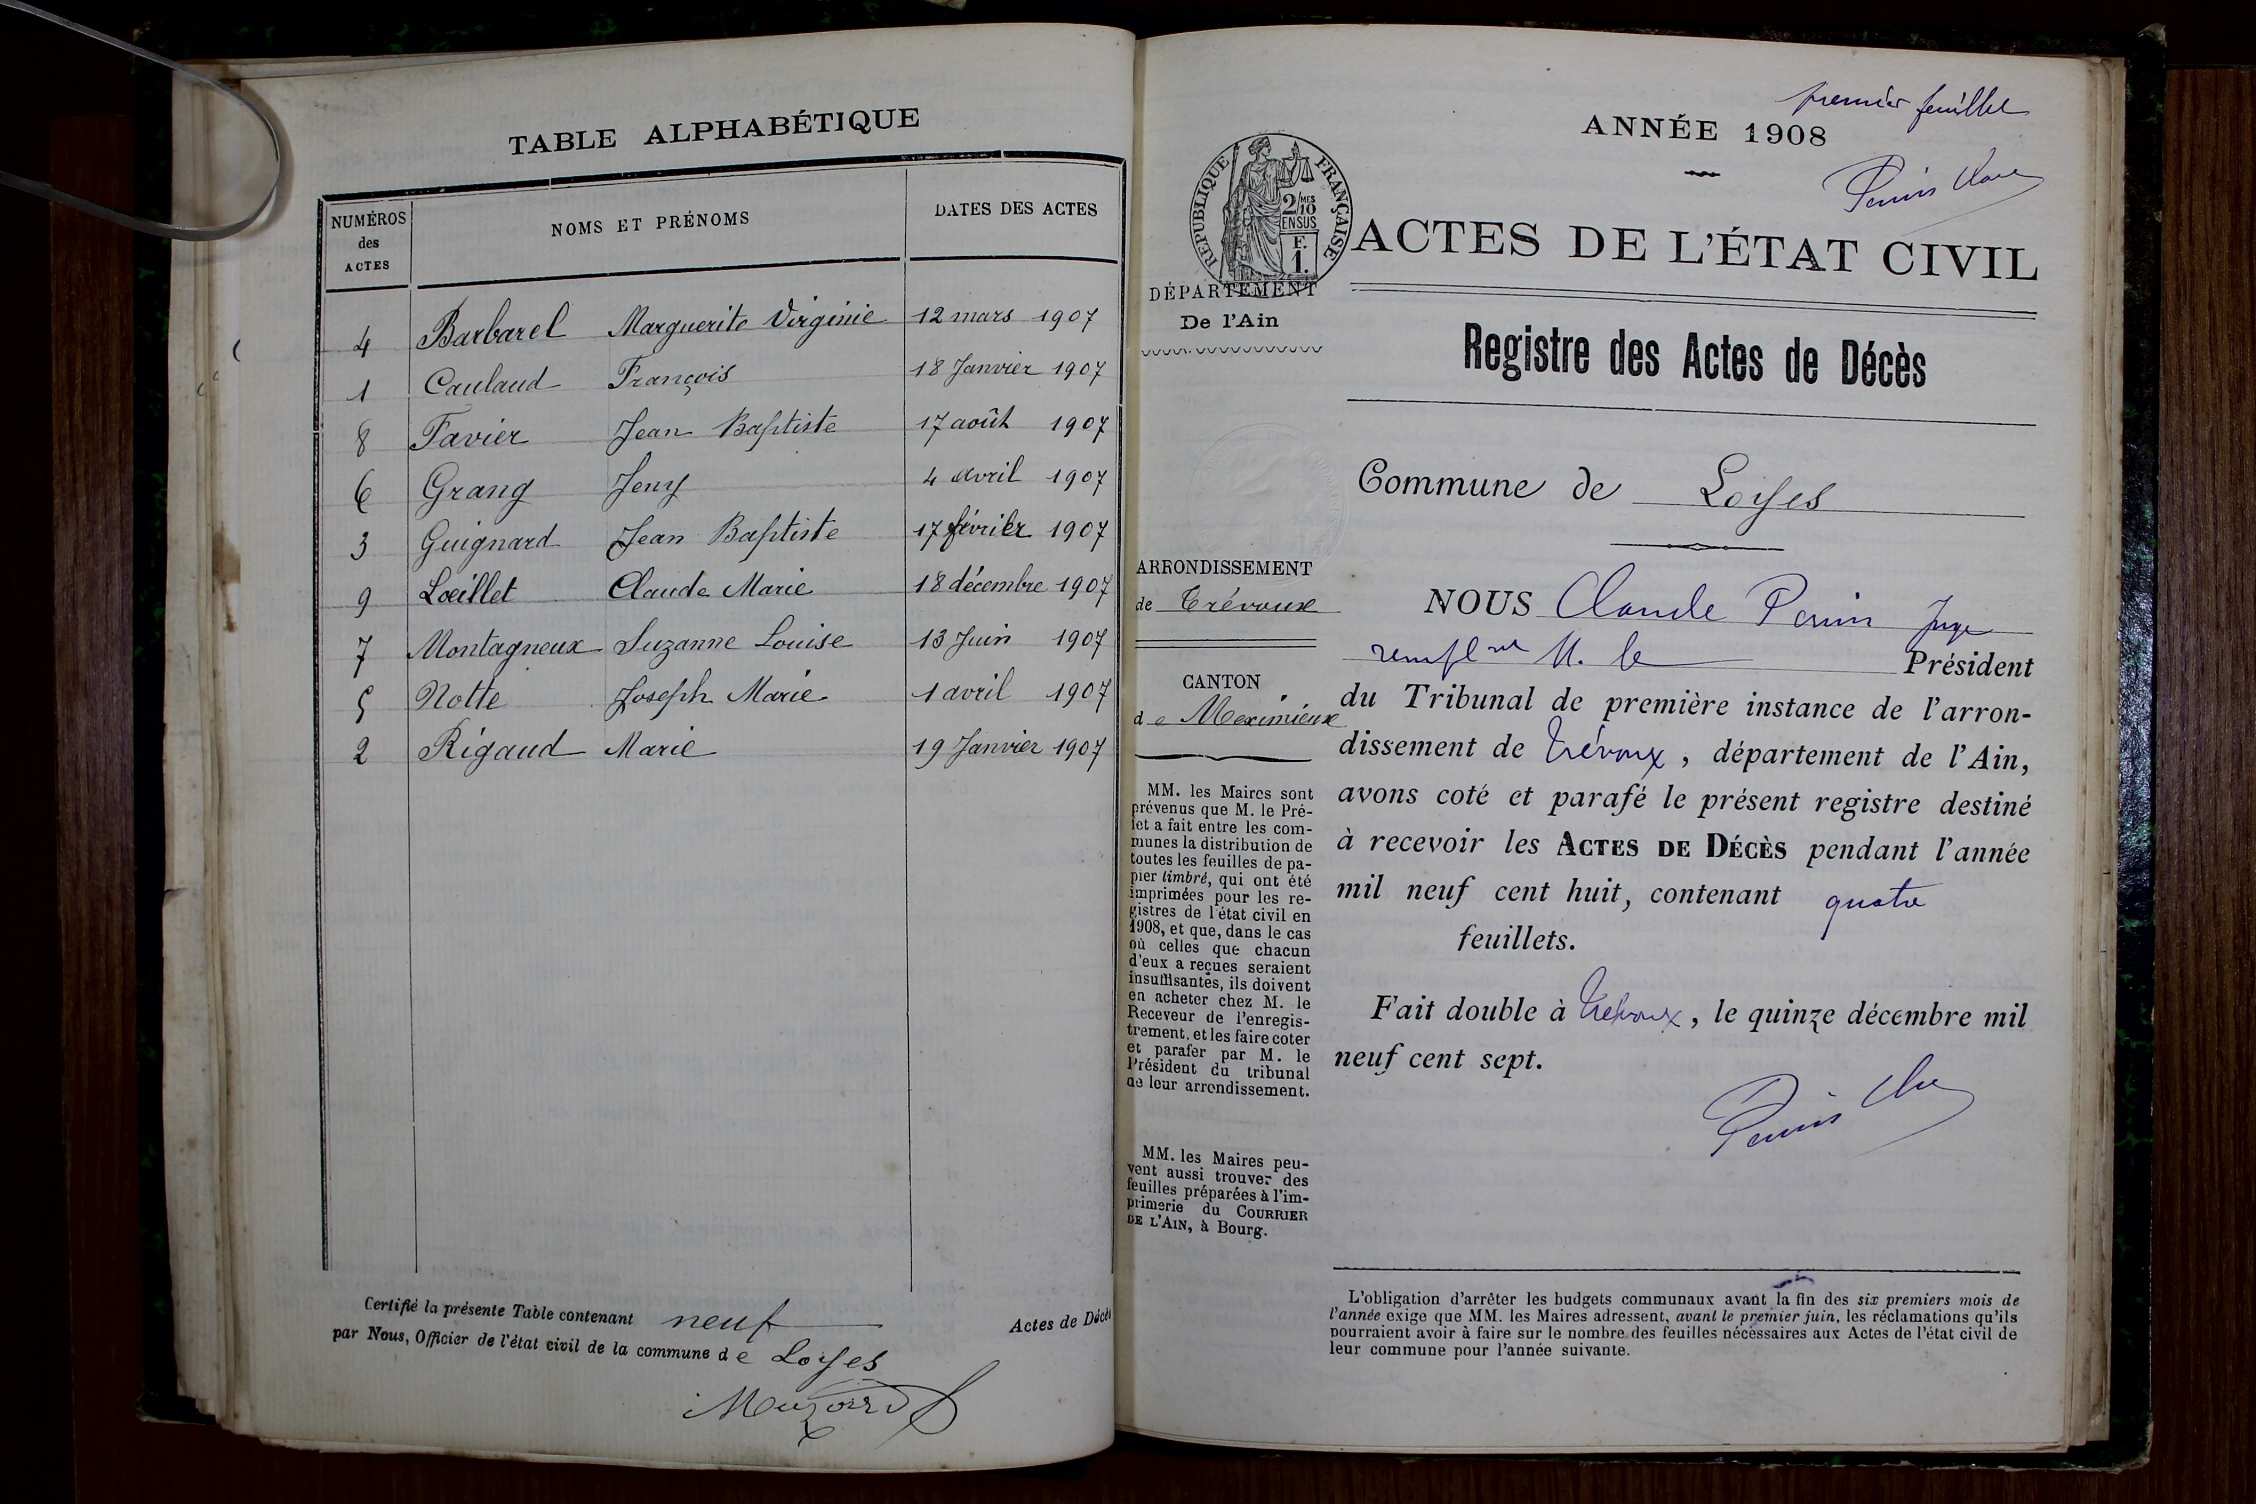 TABLE ALPHABÉTIQUE
NUMÉROS
des
ACTES
NOMS ET PRÉNOMS
DATES DES ACTES
4 Barbarel Marguerite Virginie 12 mars 1907
1 Caulaud François 18 Janvier 1907
8 Favier Jean Baptiste 17 août 1907
6 Grang Jeny 4 avril 1907
3 Guignard Jean Baptiste 17 février 1907
9 Lœillet Claude Marie 18 décembre 1907
7 Montagneux Suzanne Louise 13 Juin 1907
5 Notte Joseph Marie 1 avril 1907
2 Rigaud Marie 19 Janvier 1907
Certifié la présente Table contenant neuf Actes de Décès
par Nous, Officier de l'état civil de la commune de Loyes
premier feuillet
ANNÉE 1908
RÉPUBLIQUE FRANÇAISE
2/10 MES
EN SUS
F.
1.
ACTES DE L'ÉTAT CIVIL
DÉPARTEMENT
De l'Ain
Registre des Actes de Décès
Commune de Loyes
ARRONDISSEMENT
de Trévoux
CANTON
de Meximieux
MM. les Maires sont
prévenus que M. le Pré-
fet a fait entre les com-
munes la distribution de
toutes les feuilles de pa-
pier timbré, qui ont été
imprimées pour les re-
gistres de l'état civil en
1908, et que, dans le cas
où celles que chacun
d'eux a reçues seraient
insuffisantes, ils doivent
en acheter chez M. le
Receveur de l'enregis-
trement, et les faire coter
et parafer par M. le
Président du tribunal
de leur arrondissement.
MM. les Maires peu-
vent aussi trouver des
feuilles préparées à l'im-
primerie du COURRIER
DE L'AIN, à Bourg.
NOUS Claude Perrin Juge
rempl nt M. le Président
du Tribunal de première instance de l'arron-
dissement de Trévoux, département de l'Ain,
avons coté et parafé le présent registre destiné
à recevoir les ACTES DE DÉCÈS pendant l'année
mil neuf cent huit, contenant quatre
feuillets.
Fait double à Trévoux, le quinze décembre mil
neuf cent sept.
L'obligation d'arrêter les budgets communaux avant la fin des six premiers mois de
l'année exige que MM. les Maires adressent, avant le premier juin, les réclamations qu'ils
pourraient avoir à faire sur le nombre des feuilles nécessaires aux Actes de l'état civil de
leur commune pour l'année suivante.